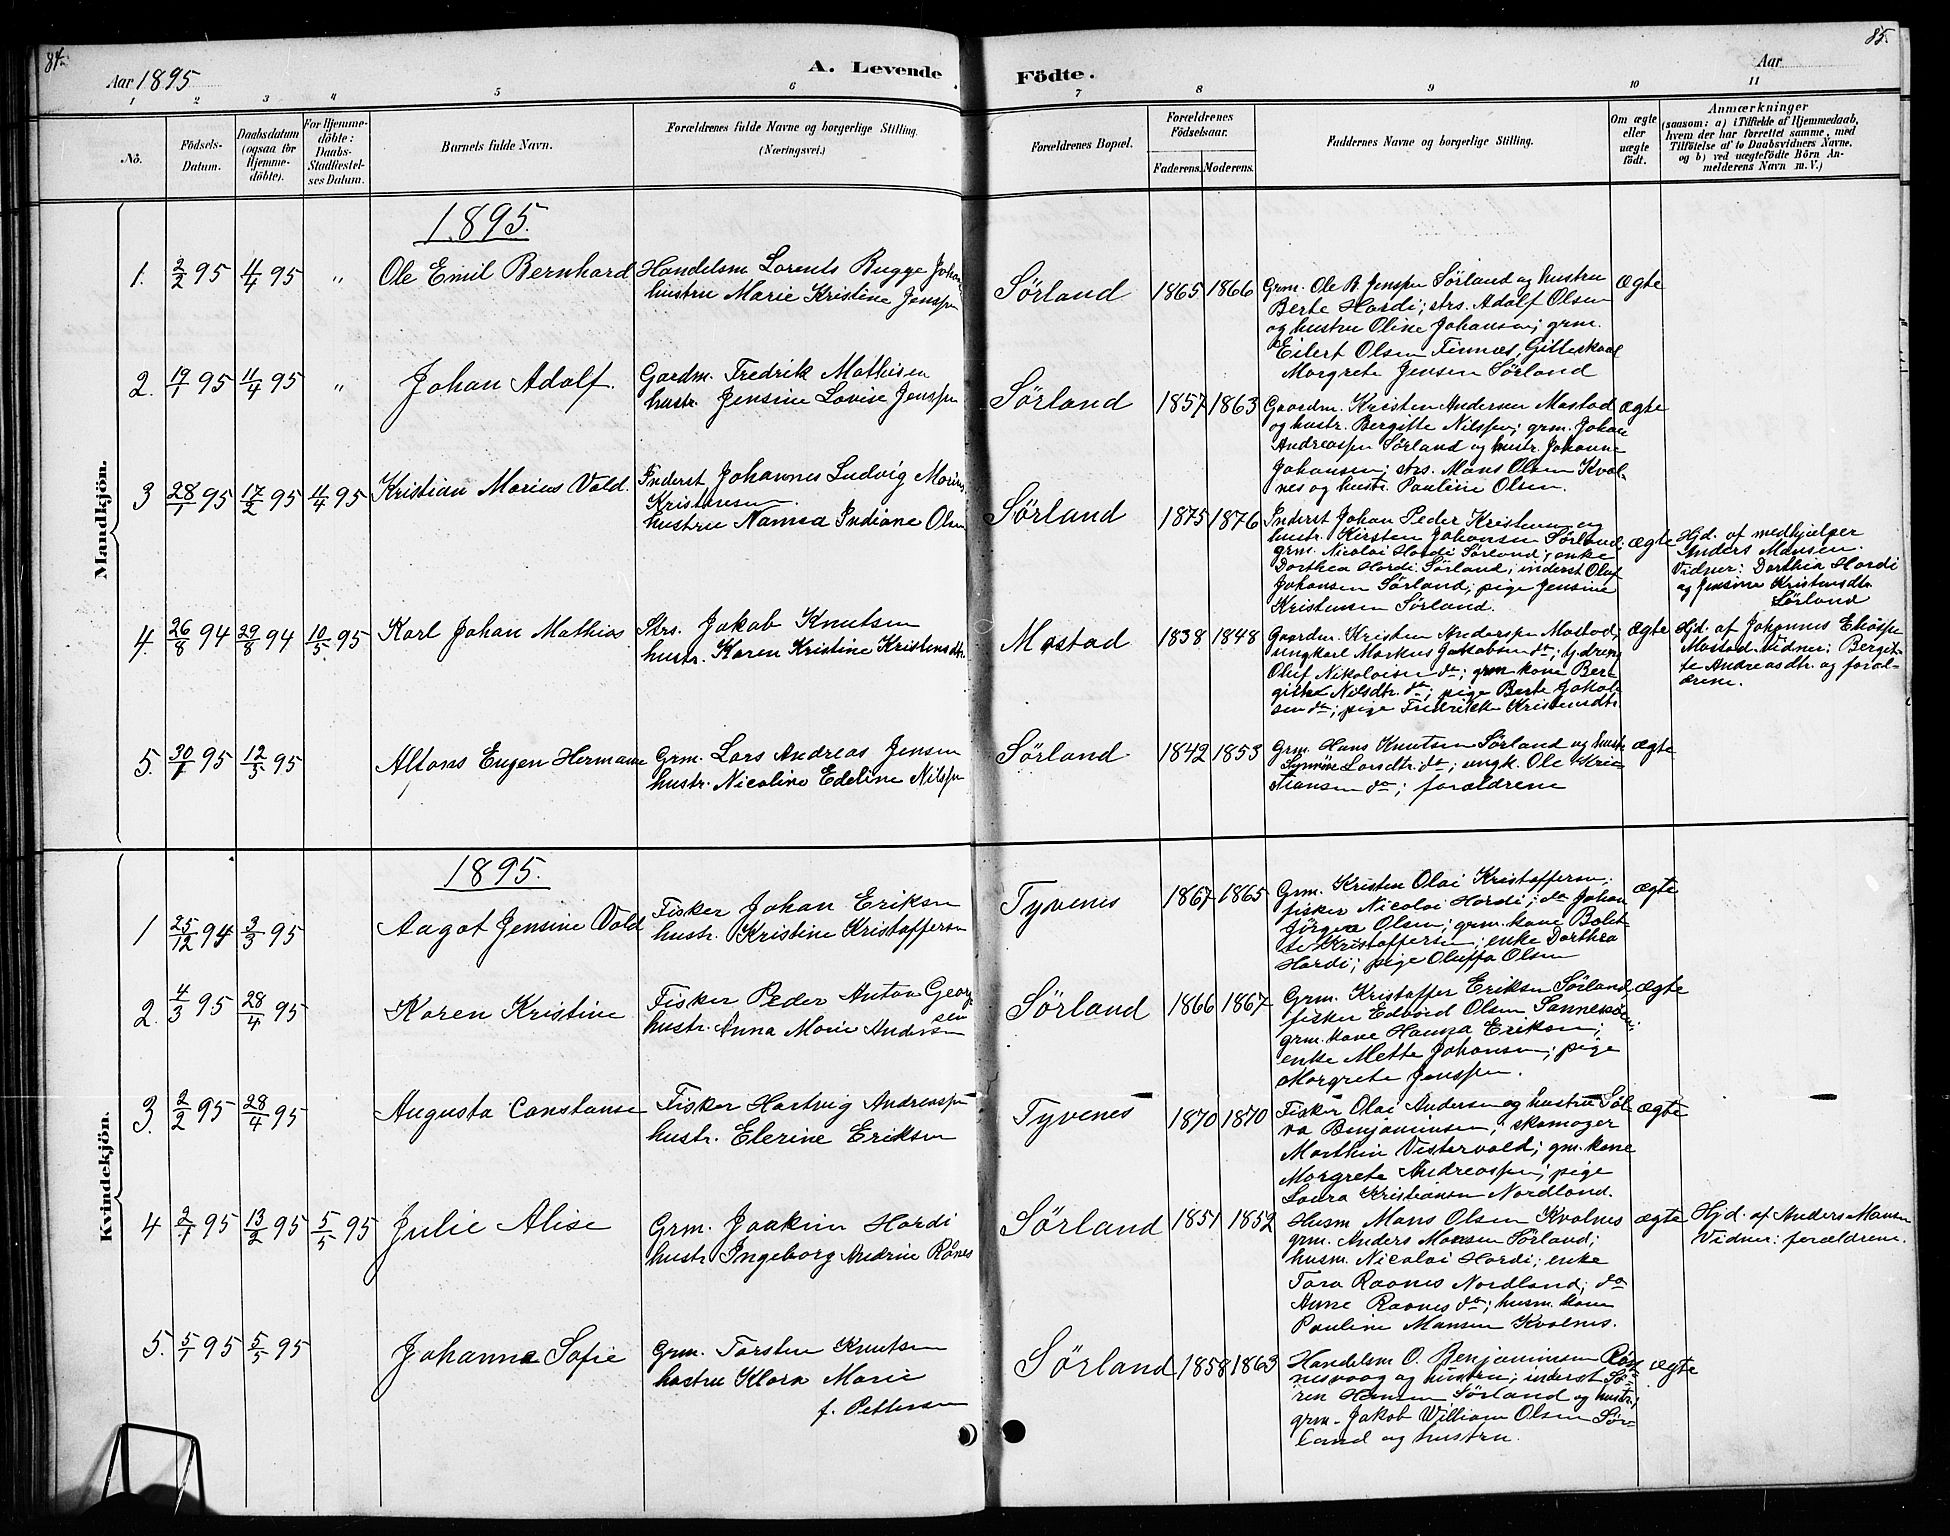 84.
85.
Aar 1895
A. Levende
Födte.
Aar
1 2 3 4 5 6 7 8 9 10 11
No.
Födsels-
Datum.
Daabsdatum
(ogsaa for
Hjemme-
döbte).
For Hjemme-
döbte:
Daabs-
Stadfestel-
ses Datum.
Barnets fulde Navn.
Forældrenes fulde Navne og borgerlige Stilling.
(Næringsvei.)
Forældrenes Bopæl.
Forældrenes
Födselsaar.
Faderens. Moderens.
Faddernes Navne og borgerlige Stilling.
Om ægte
eller
uægte
födt.
Anmærkninger
(saasom: a) i Tilfælde af Hjemmedaab,
hvem der har forrettet samme, med
Tilföielse af to Daabsvidners Navne,
og b) ved uægtefödte Börn An-
melderens Navn m. V.)
Mandkjön.
1895.
1. 2/2 95 4/4 95 " Ole Emil Bernhard
Handelsm Lorents Bugge Johan
hustru Marie Kristine Jenssen
Sørland 1865 1866
Grm. Ole B. Jenssen Sørland og hustru
Berte Hardi; strs. Adolf Olsen
og hustru Oline Johansen; grm.
Eilert Olsen Finnæs, Gilleskaal
Margrete Jensen Sørland
Ægte
2. 19/1 95 11/4 95 " Johan Adolf.
Gardm. Fredrik Mathisen
hustr. Jensine Lovise Jenssen
Sørland 1857 1863
Gaardm. Kristen Andersen Mastad
og hustr. Bergitte Nilssen; grm. Johan
Andreassen Sørland og hustr. Johanne
Johansen; strs. Mons Olsen Kval-
nes og hustr. Pauline Olsen.
ægte
3 28/1 95 17/2 95 4/4 95 Kristian Marius Vald.
Inderst Johannes Ludvig Marius
Kristensen
hustru Namsa Indiane Olsen
Sørland 1875 1876
Inderst Johan Peder Kristensen og
hustr. Kirsten Johansen Sørland;
grm. Nicolai Hardi Sørland; enke
Dorthea Hardi Sørland; inderst Oluf
Johansen Sørland; pige Jensine
Kristensen Sørland.
ægte
Hjd. af medhjelper
Anders Monsen.
Vidner: Dorthia Hardi
og Jensine Kristensdtr.
Sørland
4. 26/8 94 29/8 94 10/5 95 Karl Johan Mathias
Strs. Jakob Knutsen
hustr. Karen Kristine Kristensdtr.
Mostad 1838 1848
Gaardm. Kristen Anderssen Mastad;
ungkarl Markus Jakobsen do; tj.dreng
Oluf Nikolaisen do; grm. kone Ber-
gitte Nilsdtr. do; pige Berte Jakob-
sen do; pige Fredrikke Kristensdtr.
Ægte
Hjd. af Johannes
Mastad. Vidner: Bergit-
te Andreasdtr. og foræl-
drene.
5. 30/1 95 12/5 95 Alfons Eugen Hermann
Grm. Lars Andreas Jensen
hustr. Nicoline Edeline Nilssen
Sørland 1842 1853
Grm. Hans Knutsen Sørland og hustr.
Synnöve Larsdtr. do; ungk. Ole Kris-
tiansen do; forældrene
ægte
Kvindekjön.
1895.
1 25/12 94 3/3 95 Aagot Jensine Vald
Fisker Johan Eriksen
hustr. Kristine Kristoffersen
Tyvenes 1867 1865
Grm. Kristen Olai Kristoffersen;
fisker Nicolai Hardi; do Johan
Jørgen Olsen; grm. kone Bolet-
te Kristoffersen; enke Dorthea
Hardi; pige Oluffa Olsen
ægte
2. 4/3 95 28/4 95 Karen Kristine
Fisker Peder Anton Georg-
sen
hustr. Anna Marie Andersen
Sørland 1866 1867
Grm. Kristoffer Eriksen Sørland;
fisker Edvard Olsen
grm. kone Hanna Eriksen;
enke Mette Johansen; pige
Margrete Jenssen.
ægte
3. 2/2 95 28/4 95 Augusta Constanse
Fisker Hartvig Andreassen
hustr. Elerine Eriksen
Tyvenes 1870 1870
Fisker Olai Andersen og hustru Søl-
va Benjaminsen; skomager
Marthin Vestervold; grm. kone
Margrete Andreassen; pige
Laura Kristiansen Nordland.
ægte
4 2/1 95 13/2 95 5/5 95 Julie Alise
Grm. Joakim Hardi
hustr Ingeborg Andrine Rånes
Sørland 1851 1852
Husm Mons Olsen Kvalnes
grm. Anders Monsen Sørland;
husm. Nicolai Hardi; enke
Tara Raanes Nordland; do
Anne Raanes do; husm. kone
Pauline Monsen Kvalnes.
ægte
Hjd. af Anders Monsen
Vidner: forældrene.
5. 5/1 95 5/5 95 Johanna Sofie
Grm. Torsten Knutsen
hustru Klara Marie
f. Pettersen
Sørland 1858 1863
Handelsm O. Benjaminsen Røs-
nesvaag og hustru; inderst Sø-
ren Hansen Sørland og hustr.;
grm. Jakob William Olsen Sør-
land og hustru.
ægte